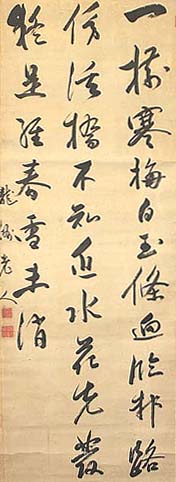 一樹寒梅白玉條迥臨村路
傍溪橋不知近水花先發
疑是經春雪未消
龍 老人